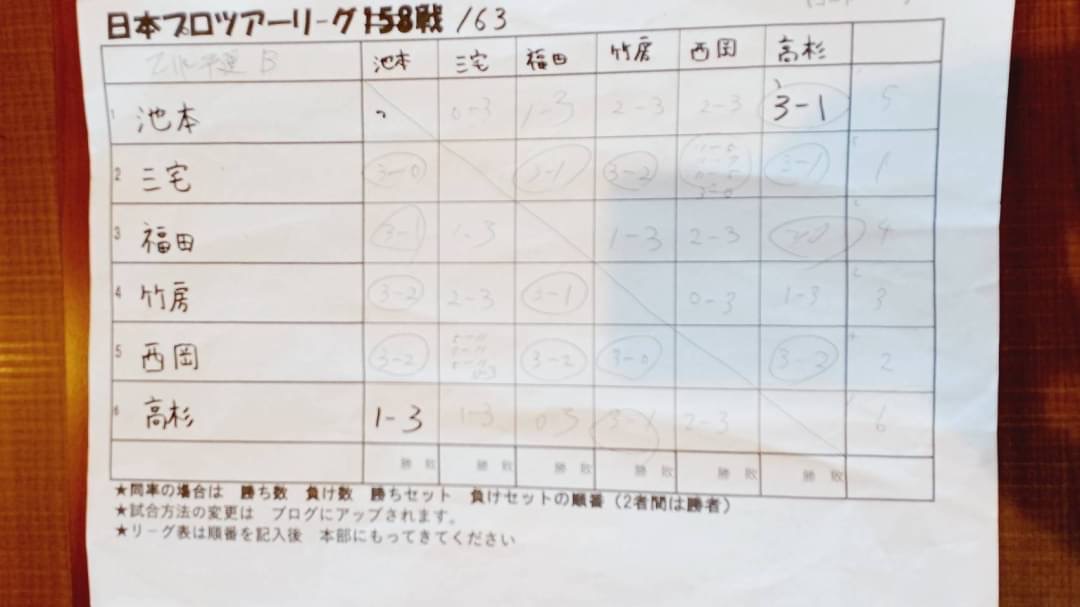 日本プロツアーリーグ158戦/163
B 池本 三宅 福田 竹房 西岡 高杉
1 池本 0-3 1-3 2-3 2-3 3-1 5
2 三宅 3-0 3-1 3-2 3-0 3-1 1
3 福田 3-1 1-3 1-3 2-3 4
4 竹房 3-2 2-3 3-1 0-3 1-3 3
5 西岡 3-2 3-2 3-0 3-2 2
6 高杉 1-3 1-3 0-3 3-1 2-3 6
勝 敗 勝 敗 勝 敗 勝 敗 勝 敗 勝 敗
★同率の場合は 勝ち数 負け数 勝ちセット 負けセットの順番（2者間は勝者）
★試合方法の変更は ブログにアップされます。
★リーグ表は順番を記入後 本部にもってきてください